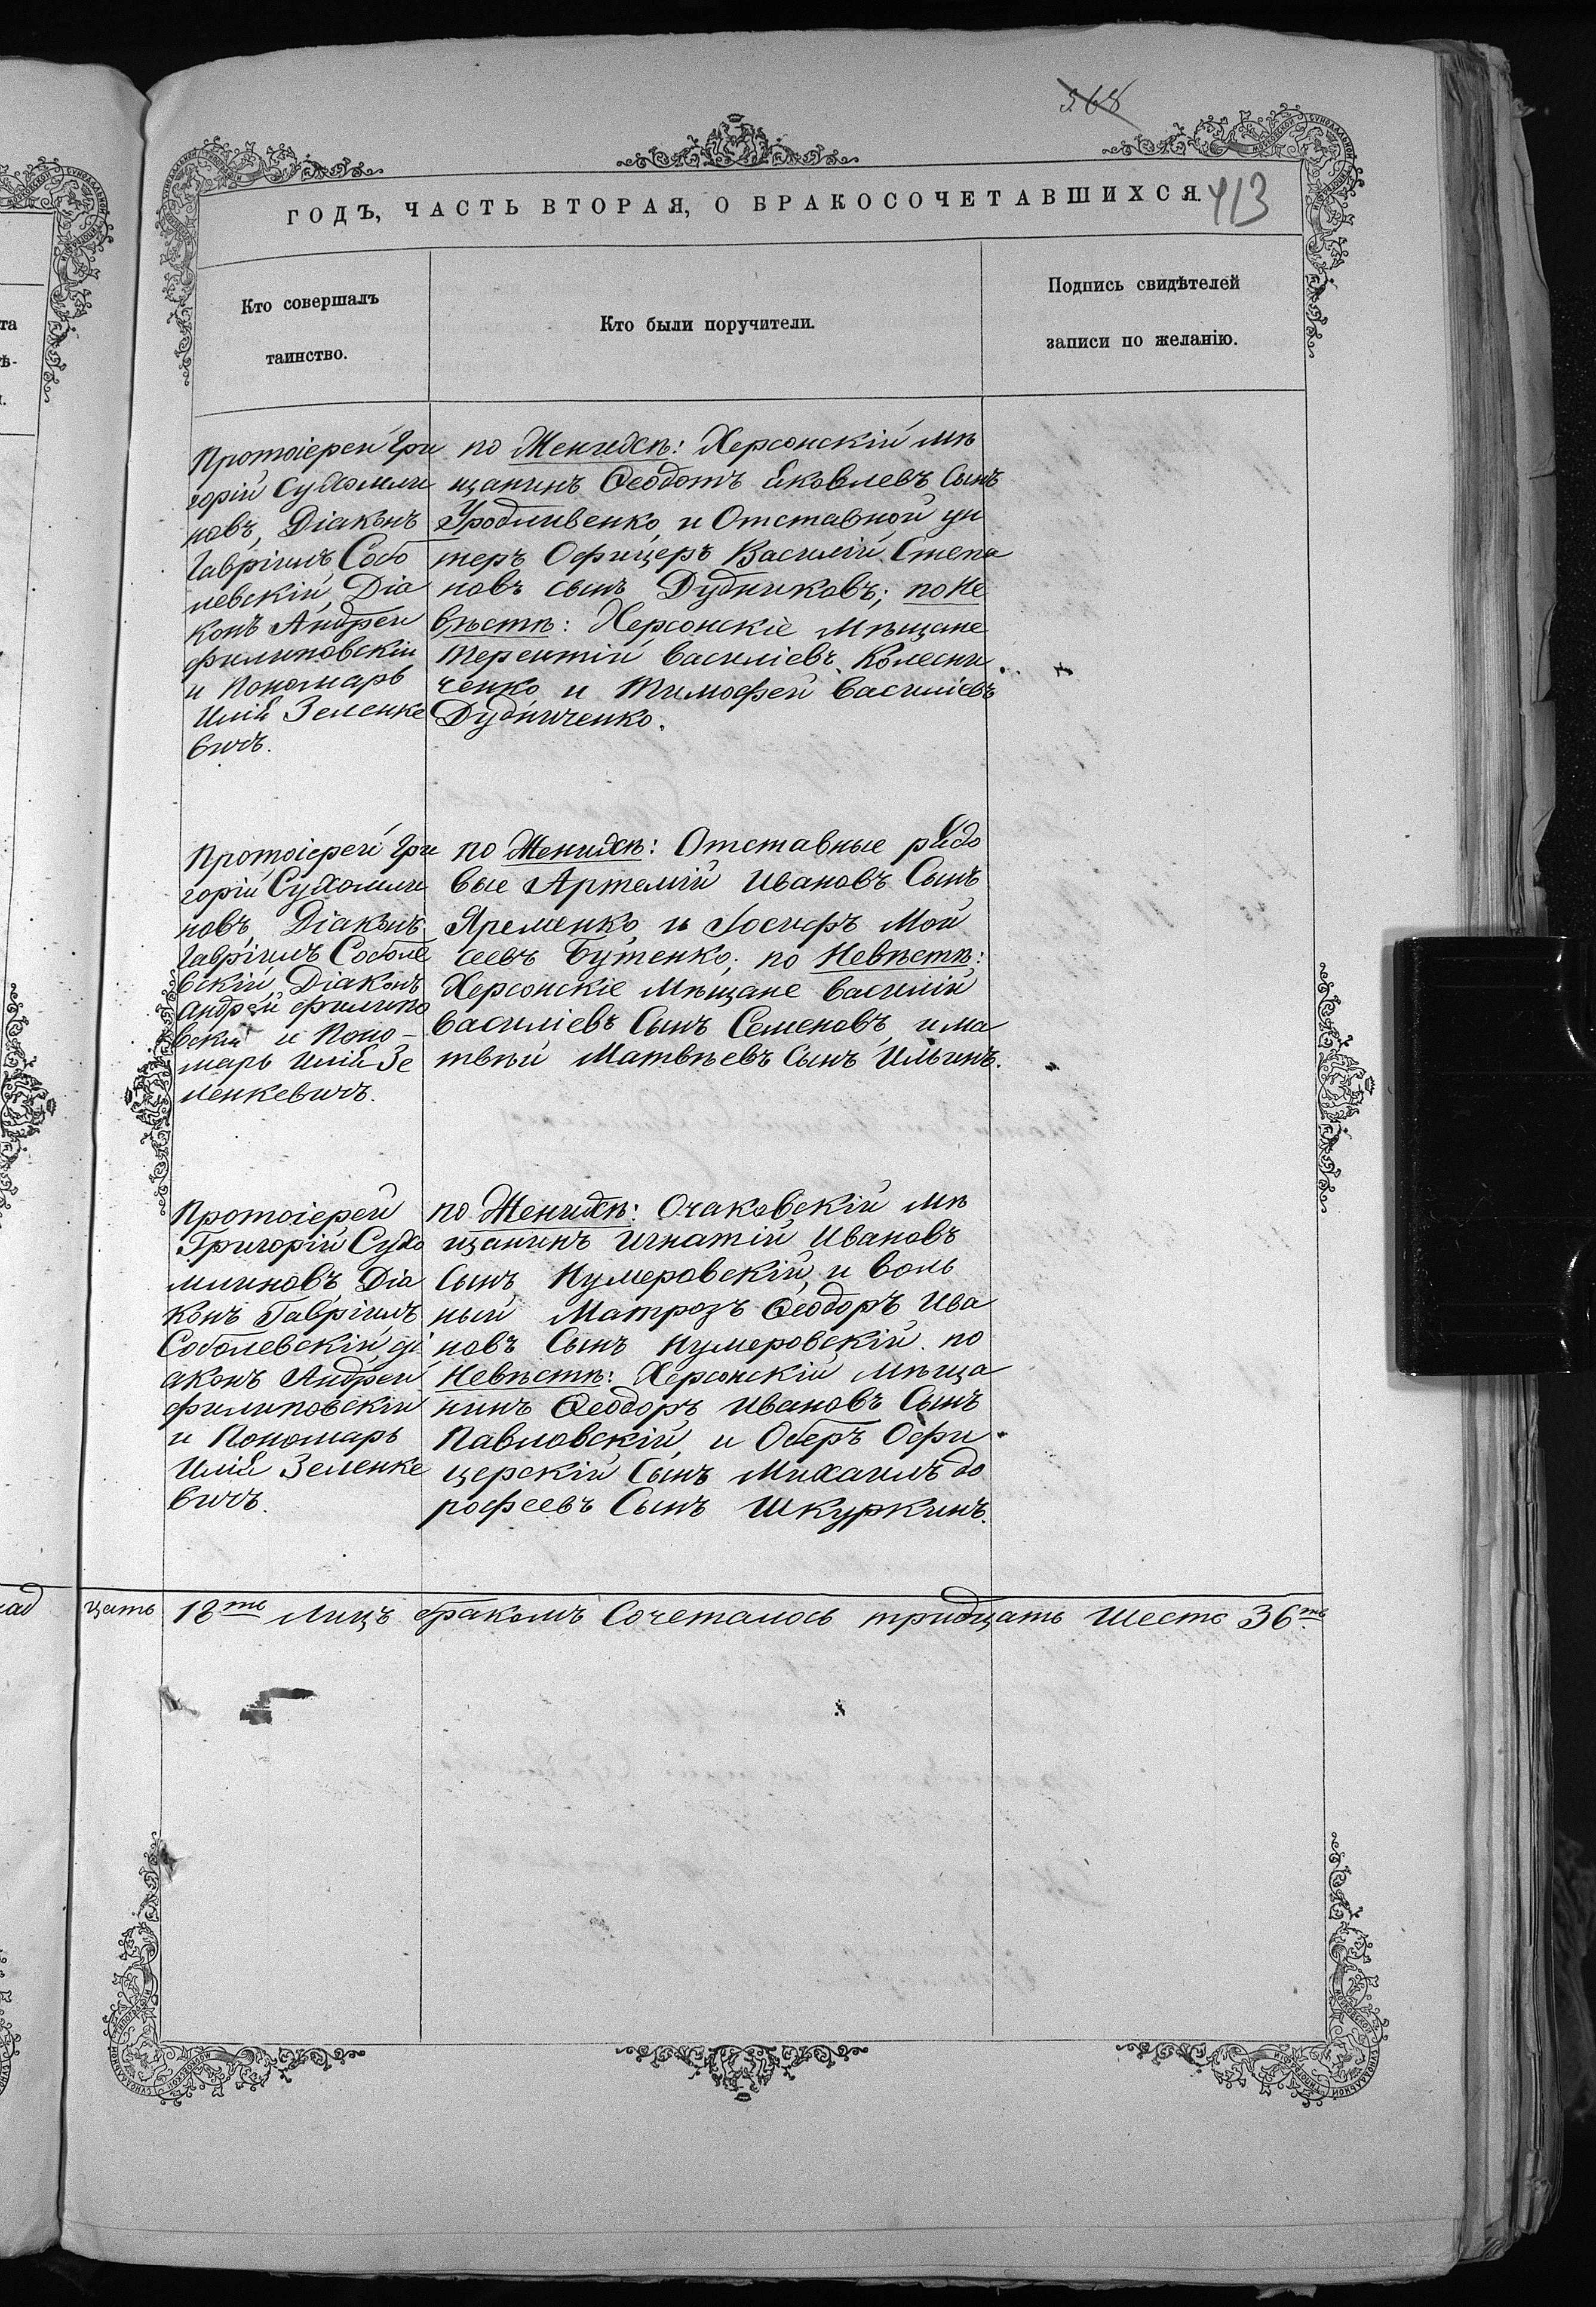 568
ГОДЪ, ЧАСТЬ ВТОРАЯ, О БРАКОСОЧЕТАВШИХСЯ.
413
Кто совершалъ
таинство.
Кто были поручители.
Подпись свидѣтелей
записи по желанію.
Протоіерей Гри
горій Сухомли
новъ, Діаконъ
Гавріилъ Собо
левскій, Діа
конъ Андрей
Филиповскій
и Пономарь
Илія Зеленке
вичъ.
по Женихѣ: Херсонскій мѣ
щанинъ Ѳеодотъ Яковлевъ Сынъ
Уродливенко, и Отставной ун
теръ Офицеръ Василій Степа
новъ сынъ Дудниковъ; по Не
вѣстѣ: Херсонскіе Мѣщане
Терентій Василіевъ Колесни
ченко и Тимофей Василіевъ
Дудниченко.
Протоіерей Гри
горій Сухомли
новъ, Діаконъ
Гавріилъ Соболе
вскій, Діаконъ
Андрей Филипо
вскій и Поно-
марь Илія Зе
ленкевичъ.
по Женихѣ: Отставные рядо
вые Артемій Ивановъ Сынъ
Яременко и Іосифъ Мой
сеевъ Бутенко; по Невѣстѣ:
Херсонскіе Мѣщане Василій
Василіевъ Сынъ Семеновъ, и Ма
твѣй Матвѣевъ Сынъ Ильинъ.
Протоіерей
Григорій Сухо
млиновъ, Діа
конъ Гавріилъ
Соболевскій, ді
аконъ Андрей
Филиповскій
и Пономарь
Илія Зеленке
вичъ.
по Женихѣ: Очаковскій мѣ
щанинъ Игнатій Ивановъ
Сынъ Кумеровскій, и воль
ный Матрозъ Ѳеодоръ Ива
новъ Сынъ Кумеровскій. по
Невѣстѣ: Херсонскій Мѣща
нинъ Ѳеодоръ Ивановъ Сынъ
Павловскій, и Оберъ Офи
церскій Сынъ Михаилъ До
рофеевъ Сынъ Шкуркинъ.
цать 18ть Лицъ бракомъ Сочеталось тридцать Шесть 36ть